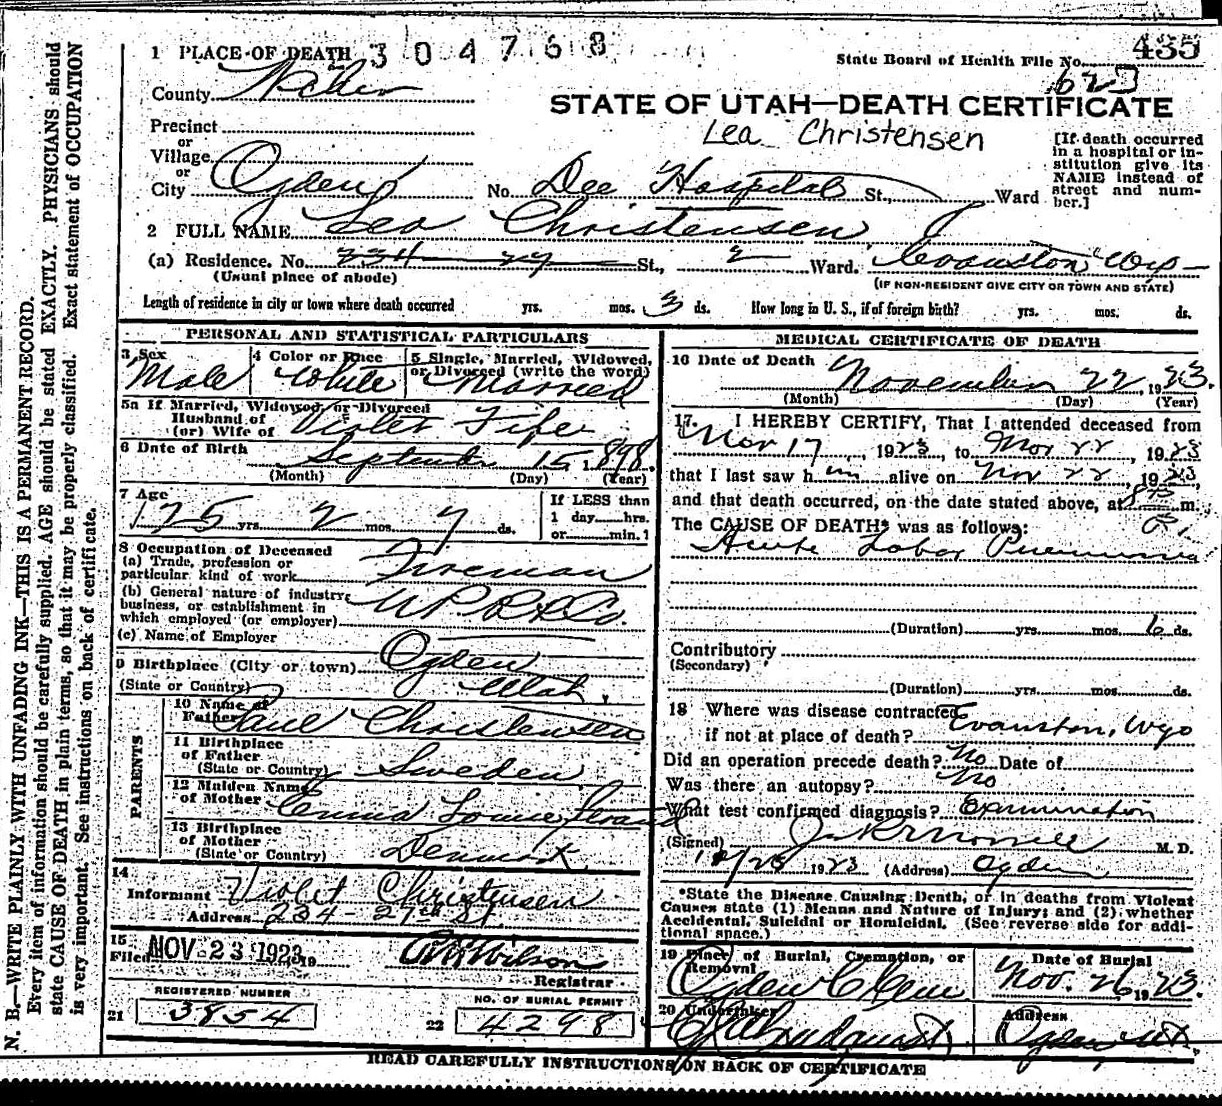 1 PLACE OF DEATH 304768
State Board of Health File No. 435
County Weber
623
STATE OF UTAH—DEATH CERTIFICATE
Precinct
Lea Christensen
or
Village
or
City Ogden No. Dee Hospital St., Ward
[If death occurred
in a hospital or in-
stitution give its
NAME instead of
street and num-
ber.]
2 FULL NAME Leo Christensen
(a) Residence. No. 234 27 St., 2 Ward. Evanston Wyo
(Usual place of abode)
(IF NON-RESIDENT GIVE CITY OR TOWN AND STATE)
Length of residence in city or town where death occurred yrs. mos. 3 ds. How long in U. S., if of foreign birth? yrs. mos. ds.
PERSONAL AND STATISTICAL PARTICULARS
3 Sex
Male
4 Color or Race
White
5 Single, Married, Widowed,
or Divorced (write the word)
Married
5a If Married, Widowed, or Divorced
Husband of
(or) Wife of Violet Fife
6 Date of Birth
September 15 1898.
(Month) (Day) (Year)
7 Age
25 yrs. 2 mos. 7 ds.
If LESS than
1 day......hrs.
or......min.]
8 Occupation of Deceased
(a) Trade, profession or
particular kind of work Fireman
(b) General nature of industry,
business, or establishment in
which employed (or employer) U P R R Co.
(c) Name of Employer
9 Birthplace (City or town) Ogden
(State or Country) Utah,
PARENTS
10 Name of
Father Paul Christensen
11 Birthplace
of Father
(State or Country) Sweden
12 Maiden Name
of Mother Louise
13 Birthplace
of Mother
(State or Country) Denmark
14
Informant Violet Christensen
Address 234-27th St
15
Filed NOV 23 1923 19
Wilson
Registrar
REGISTERED NUMBER
21 3854
NO. OF BURIAL PERMIT
22 4298
MEDICAL CERTIFICATE OF DEATH
16 Date of Death
November 22, 1923.
(Month) (Day) (Year)
17. I HEREBY CERTIFY, That I attended deceased from
Nov 17, 1923, to Nov 22, 1923
that I last saw him alive on Nov 22, 1923,
and that death occurred, on the date stated above, at m.
The CAUSE OF DEATH* was as follows:
Acute Lobar Pneumonia
(Duration) yrs. mos. 6 ds.
Contributory
(Secondary)
(Duration) yrs. mos. ds.
18 Where was disease contracted
if not at place of death? Evanston, Wyo
Did an operation precede death? No Date of
Was there an autopsy? No
What test confirmed diagnosis? Examination
(Signed) M. D.
1923 (Address) Ogden
*State the Disease Causing Death, or in deaths from Violent
Causes state (1) Means and Nature of Injury; and (2) whether
Accidental, Suicidal or Homicidal. (See reverse side for addi-
tional space.)
19 Place of Burial, Cremation, or
Removal
Ogden C Cem
Date of Burial
Nov. 26, 1923.
20 Undertaker
Address
Ogden Ut.
READ CAREFULLY INSTRUCTIONS ON BACK OF CERTIFICATE
N. B.—WRITE PLAINLY WITH UNFADING INK—THIS IS A PERMANENT RECORD.
Every item of information should be carefully supplied. AGE should be stated EXACTLY. PHYSICIANS should
state CAUSE OF DEATH in plain terms, so that it may be properly classified. Exact statement of OCCUPATION
is very important. See instructions on back of certificate.